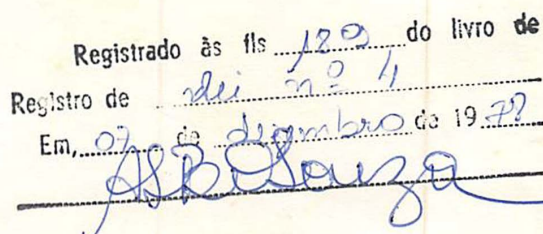 Registrado às fls 180 do livro de
Registro de Lei nº 4
Em, 07 de dezembro de 1978
ASBSouza